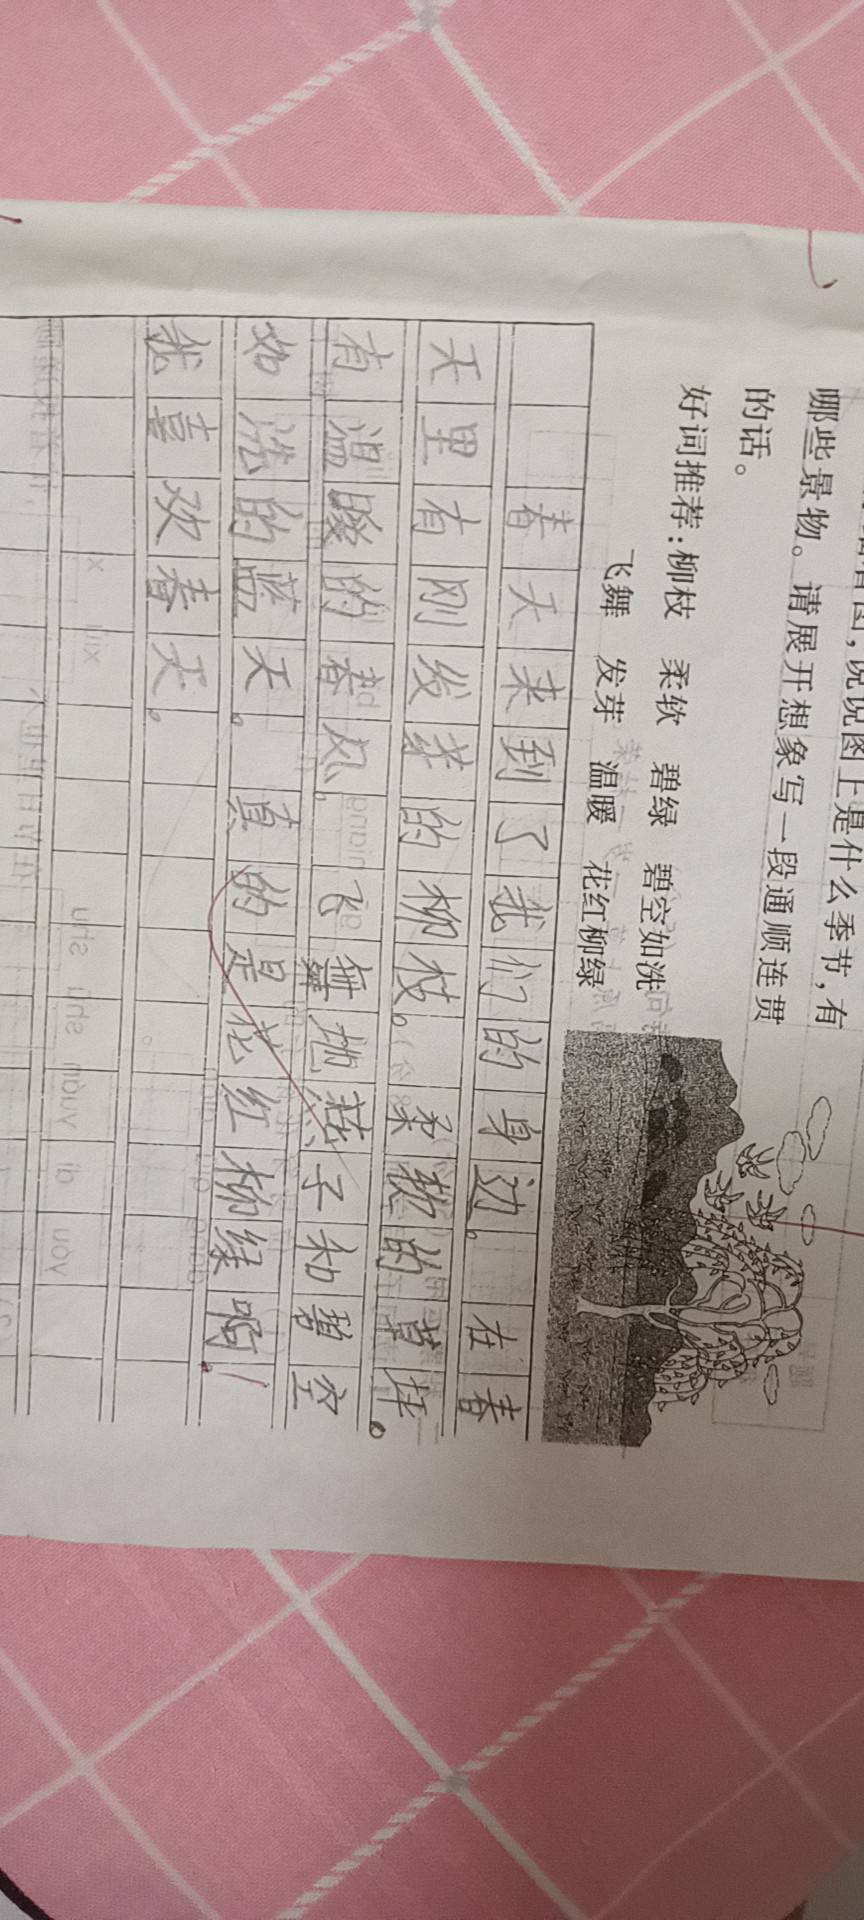 图，说说图上是什么季节，有
哪些景物。请展开想象写一段通顺连贯
的话。
好词推荐：柳枝 柔软 碧绿 碧空如洗
飞舞 发芽 温暖 花红柳绿
春天来到了我们的身边。在春
天里有刚发芽的柳枝。柔软的草坪。
有温暖的春风，飞舞地燕子和碧空
如洗的蓝天。真的是花红柳绿啊！
我喜欢春天。